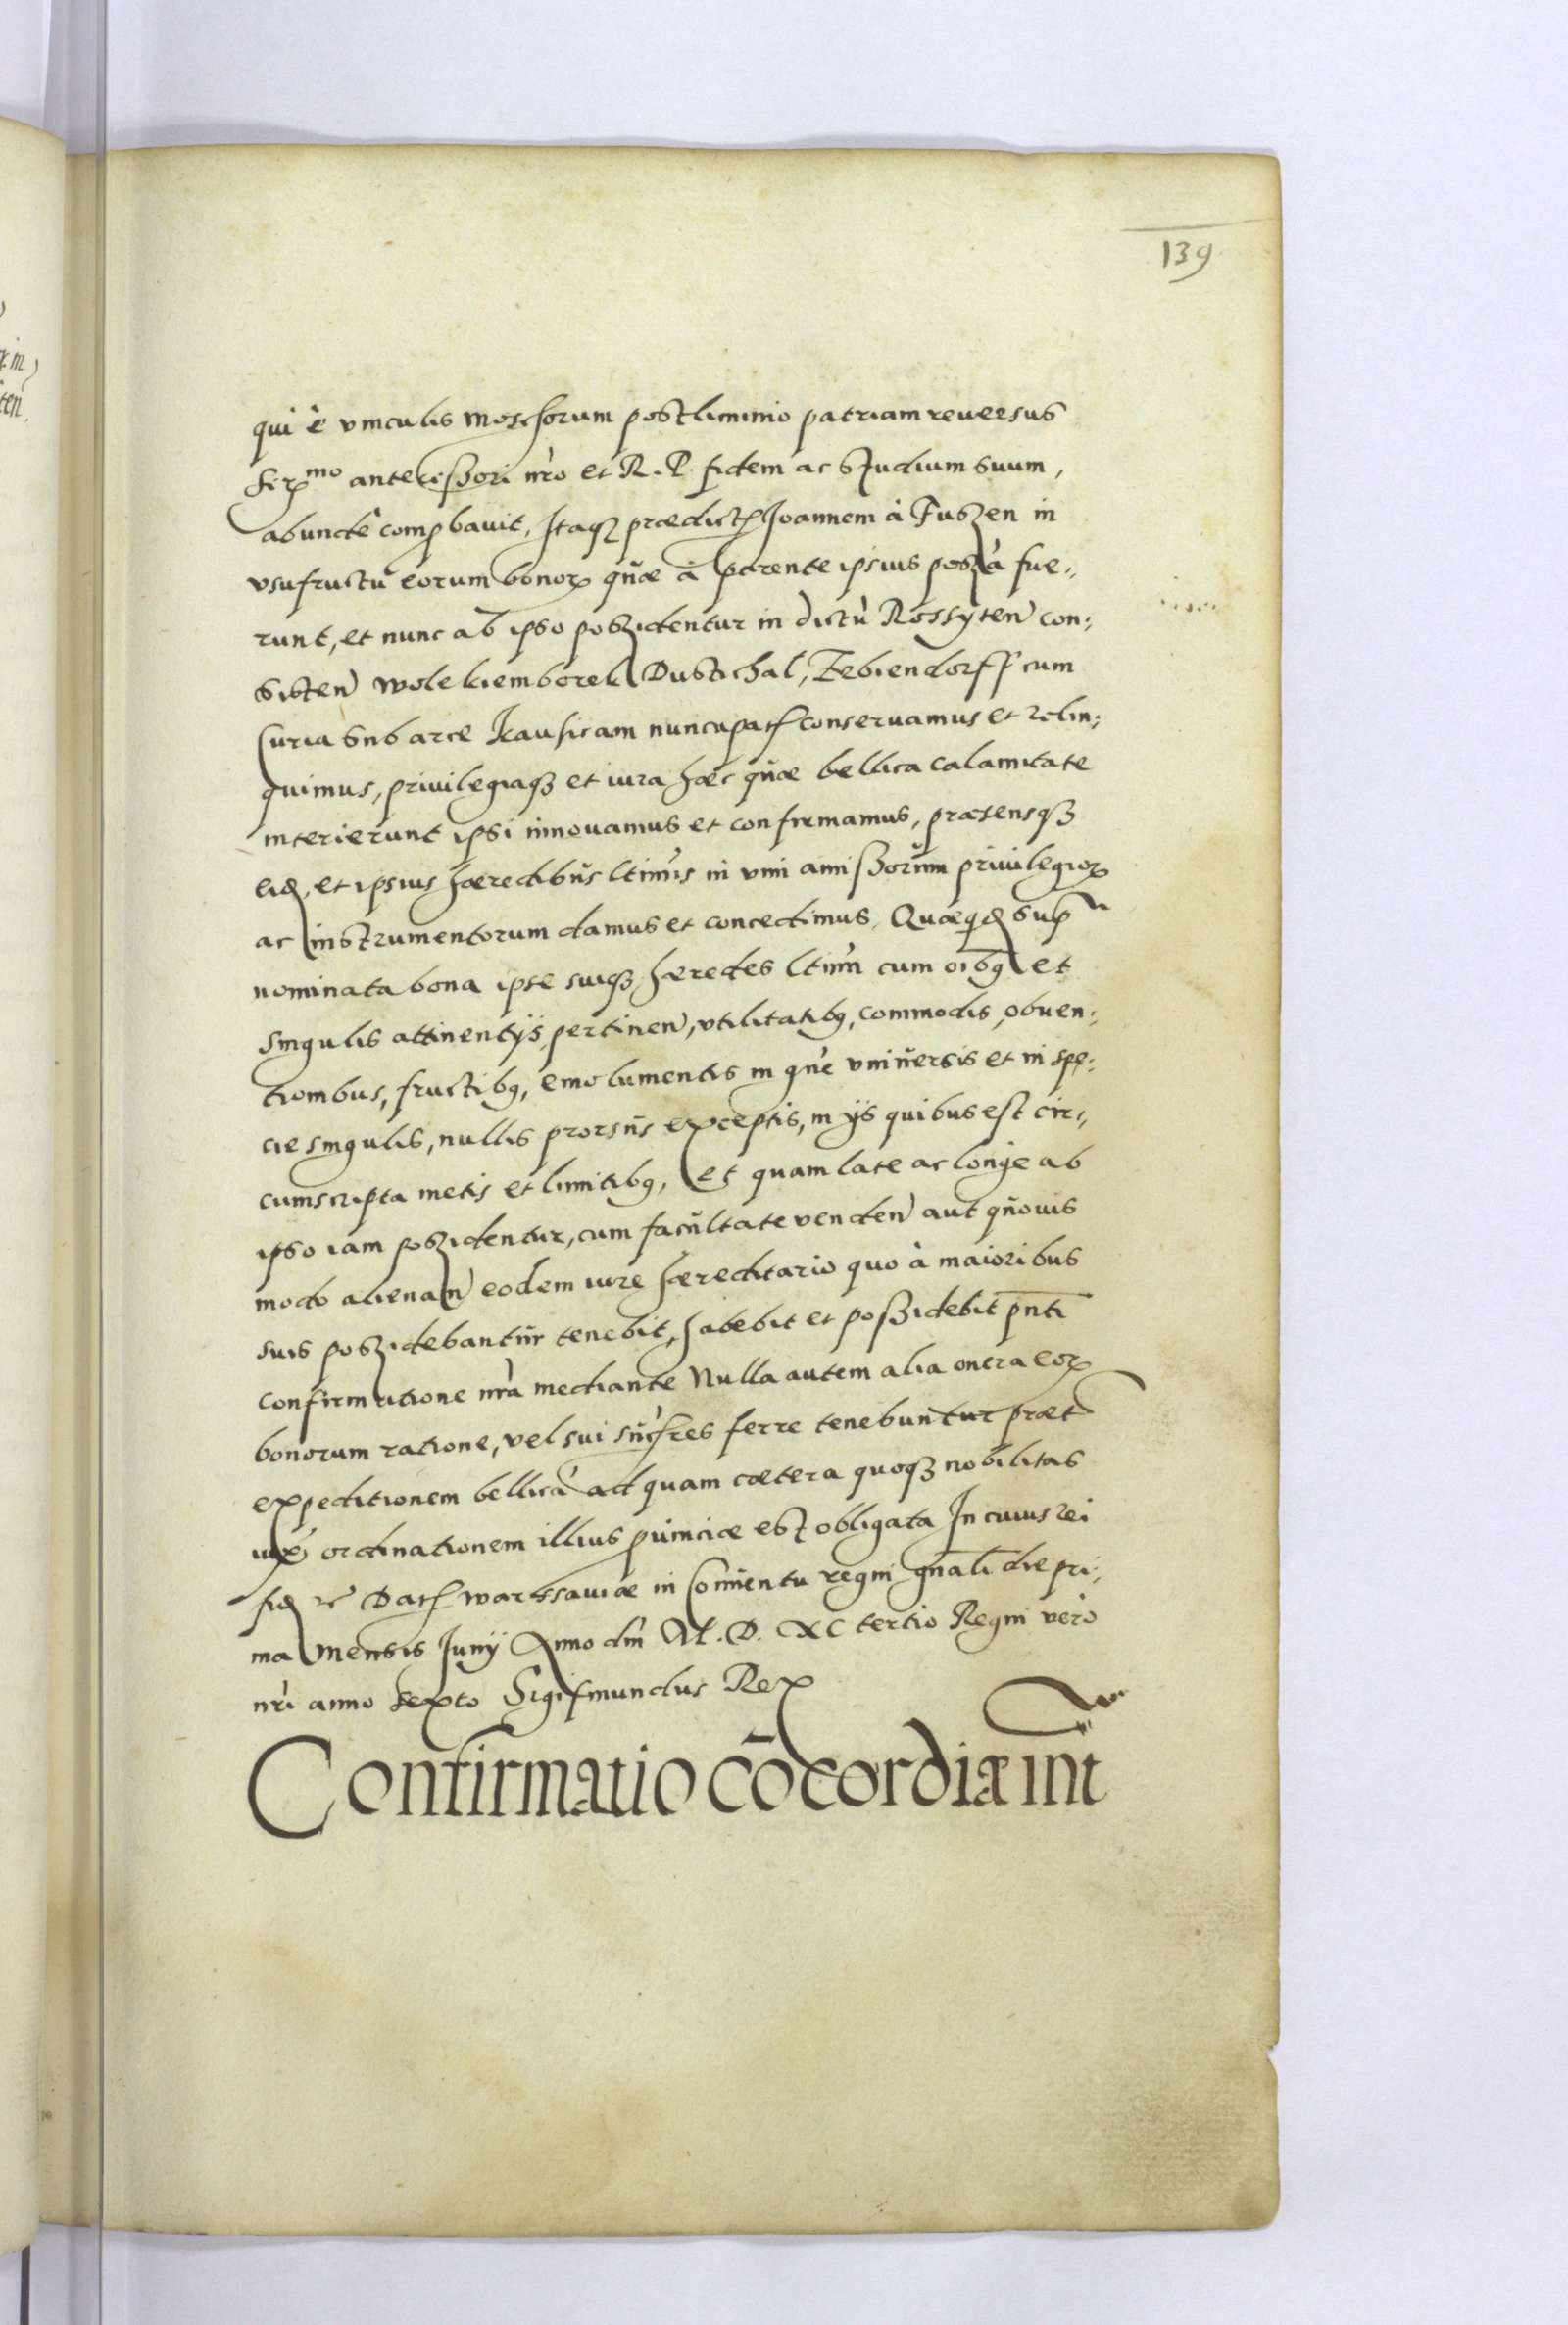 139
qui è vinculis Moschorum postliminio patriam reversus
Ser^mo antecißori nro et R. P. fidem ac studium suum,
abunde comꝓbavit, Itaqꝫ prædict Joannem à Fuszen in
vsufructũ eorum bonoꝝ quæ à parente ipsius posza fue„
runt, et nunc ab ipso poszidentur in dictũ Rossyten con„
sisten Wolekiemborek Dustichal, Zebiendorff cum
Curia sub arce Ikausicam nuncupat conservamus et relin„
quimus, privilegiaqꝫ et iura hæc quæ bellica calamitate
interierunt ipsi innovamus et confirmamus, præsensqꝫ
eid, et ipsius hæredibus ltimis in vim amißorum privilegioꝝ
ac instrumentorum damus et concedimus. Quæquid sup
nominata bona ipse suiqꝫ hæredes ltimi cum oibꝫ et
singulis attinentijs, pertinen, vtilitatibꝫ, commodis, obuen„
tionibus, fructibꝫ, emolumentis in gñe vniuersis et in spe„
cie singulis, nullis prorsus exceptis, in ijs quibus est cir„
cumscripta metis et limitibꝫ, et quam late ac longe ab
ipso iam poszidentur, cum facultate venden aut quouis
modo alienan eodem iure hæreditario quo à maioribus
suis poszidebantur tenebit, habebit et poßidebit pnti
confirmatione nra mediante Nulla autem alia onera eoꝝ
bonorum ratione, vel sui sucẽres ferre tenebuntur præt
expeditionem bellicã ad quam cætera quoqꝫ nobilitas
iuxᵃ ordinationem illius ꝓuinciæ est obligata In cuius rei
fid rc Dat Warssauiæ in Conuentu regni gnali die pri„
ma Mensis Junij Anno dni M. D. XC tertio Regni vero
nri anno Sexto Sigismundus Rex
Confirmatio cōcordiæ int